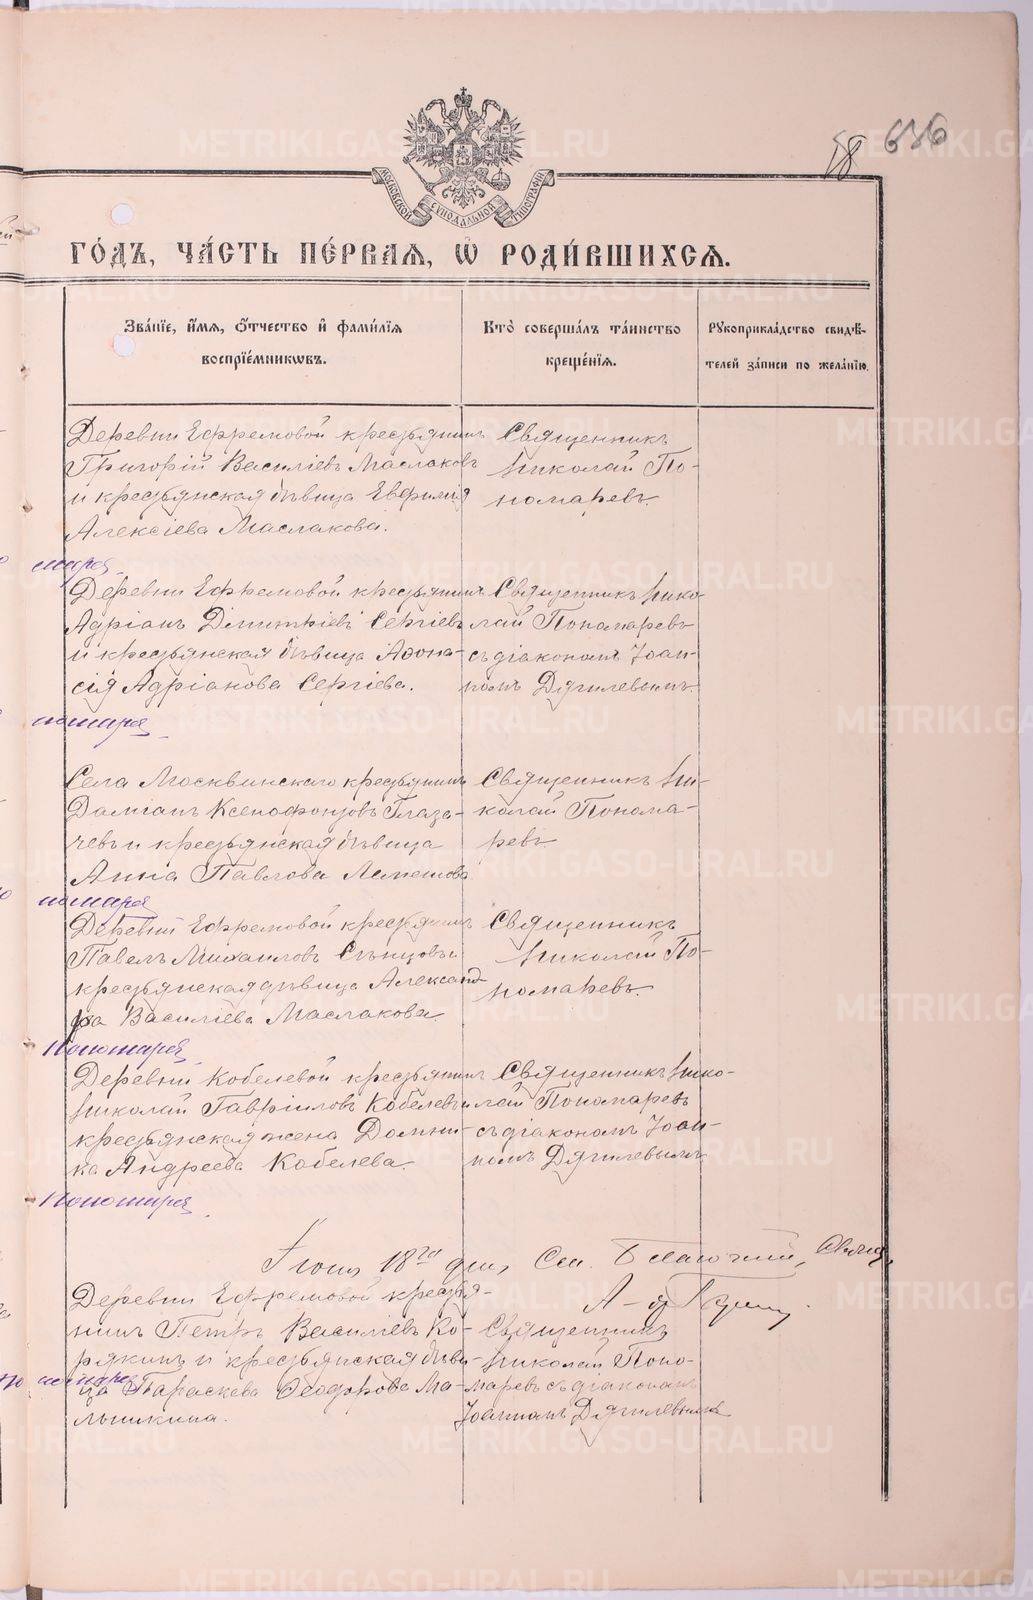 18 636
МОСКОВСКОЙ СѴНОДАЛЬНОЙ ТИПОГРАФІИ
ГО́ДЪ, ЧА́СТЬ ПЕ́РВАѦ, Ѽ РОДИ́ВШИХСѦ.
Зва́нїе, и́мѧ, ѻ́тчество и҆ фами́лїѧ
воспрїе́мникѡвъ.
Кто̀ соверша́лъ та́инство
креще́нїѧ.
Рꙋкоприкла́дство свидѣ́-
телей за́писи по жела́нїю.
Деревни Ефремовой крестьянинъ
Григорій Василіевъ Маслаковъ
и крестьянская дѣвица Евфимія
Алексіева Маслакова.
Священникъ
Николай По-
номаревъ.
Деревни Ефремовой крестьянинъ
Адріанъ Димитріевъ Сергіевъ
и крестьянская дѣвица Аѳона-
сія Адріанова Сергіева.
Священникъ Нико-
лай Пономаревъ
съ діакономъ Іоан-
номъ Дягилевымъ.
номаря
Села Москвинскаго крестьянинъ
Даміанъ Ксенофонтовъ Глаза-
чевъ и крестьянская дѣвица
Анна Павлова Лемешова
Священникъ Ни-
колай Понома-
ревъ
номаря
Деревни Ефремовой крестьянинъ
Павелъ Михаиловъ Слѣнцовъ и
крестьянская дѣвица Александ-
ра Василіева Маслакова.
Священникъ
Николай По-
номаревъ.
Пономаря
Деревни Кобелевой крестьянинъ
Николай Гавріиловъ Кобелевъ и
крестьянская жена Домни-
ка Андреева Кобелева.
Священникъ Нико-
лай Пономаревъ
съ діакономъ Іоан-
номъ Дягилевымъ.
Пономаря
Іюня 18го дня, Свящ.
Деревни Ефремовой крестья-
нинъ Петръ Василіевъ Ко-
рякинъ и крестьянская дѣви-
ца Параскева Ѳеодорова Ма-
лышкина.
Священникъ
Николай Поно-
маревъ съ діаконом
Іоанномъ Дягилевымъ
METRIKI.GASO-URAL.RU